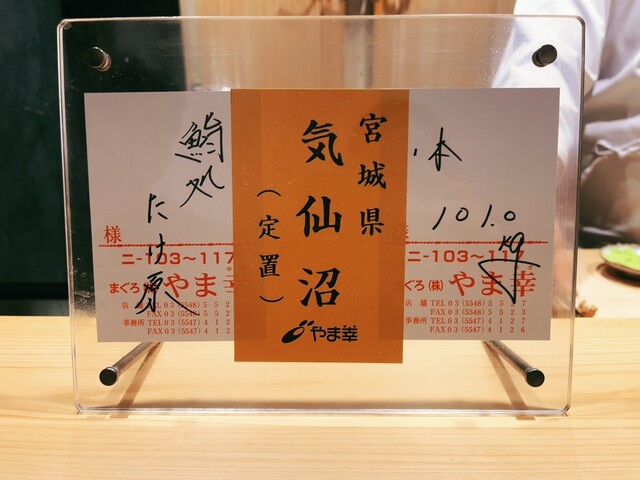 鮨処
たけ原
様
ニ-103～117
まぐろ やま幸
TEL 03 (5548) 5 5 2
FAX 03 (5548) 5 5 2
事務所 TEL 03 (5547) 4 1 2
FAX 03 (5547) 4 1 2
宮城県
気仙沼
(定置)
やま幸
本
101.0
kg
ニ-103～117
まぐろ (株) やま幸
店舗 TEL 03 (5548) 5 5 2 7
FAX 03 (5548) 5 5 2 6
事務所 TEL 03 (5547) 4 1 2 7
FAX 03 (5547) 4 1 2 3